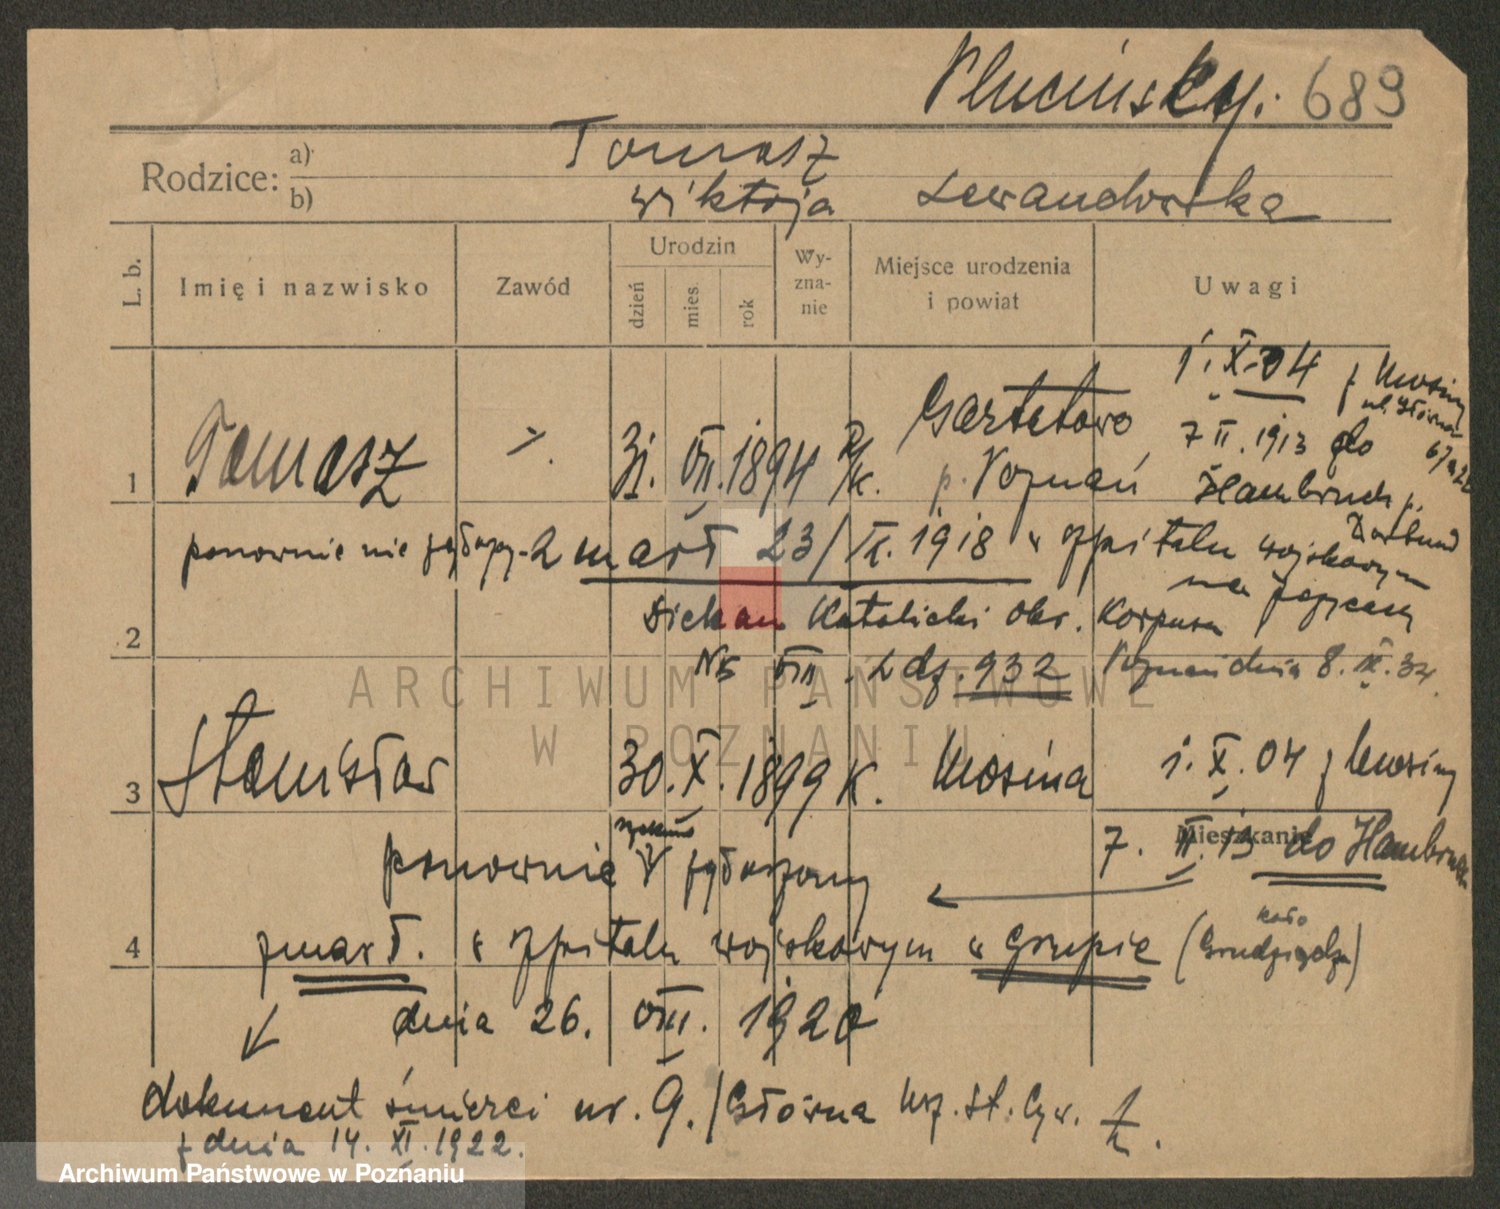 Plucińscy. 689
Rodzice: a) Tomasz
b) Wiktorja Lewandowska
L. b. Imię i nazwisko Zawód Urodzin dzień mies. rok Wy-zna-nie Miejsce urodzenia i powiat Uwagi
1. X. 04 z Mosiny
ul. Główna
1 Tomasz 31. VII. 1894 k. p. Poznań
7 II. 1913 do
Hambruch p.
Dortmund
ponownie nie zgłoszy. zmarł 23/IX. 1918 w szpitalu wojskowym
2 Dziekan Katolicki Okr. Korpusu
No VII L dz. 932 Poznań dnia 8. IX. 34.
ARCHIWUM PAŃSTWOWE
W POZNANIU
3 Stanisław 30. X. 1899 k. Mosina 1. X. 04 z Mosiny
Mieszkanie
7. II. 13 do Hambruch
ponownie zgłoszony
4 zmarł. w szpitalu wojskowym w Grupie (koło Grudziądza)
dnia 26. VIII. 1920
dokument śmierci nr. 9. / Główna Urz. St. Cyw.
z dnia 14. XI. 1922.
Archiwum Państwowe w Poznaniu